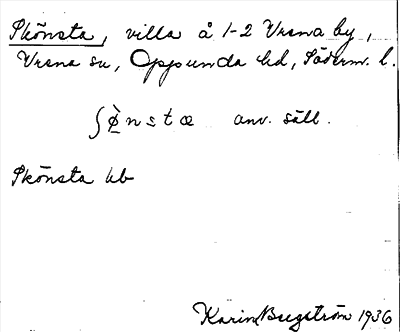 Skönsta, villa å 1-2 Vrena by,
Vrena sn, Oppunda hd, Söderm. l.
ʃø̀nstæ anv. säll.
Skönsta hb
Karin Bergström 1936